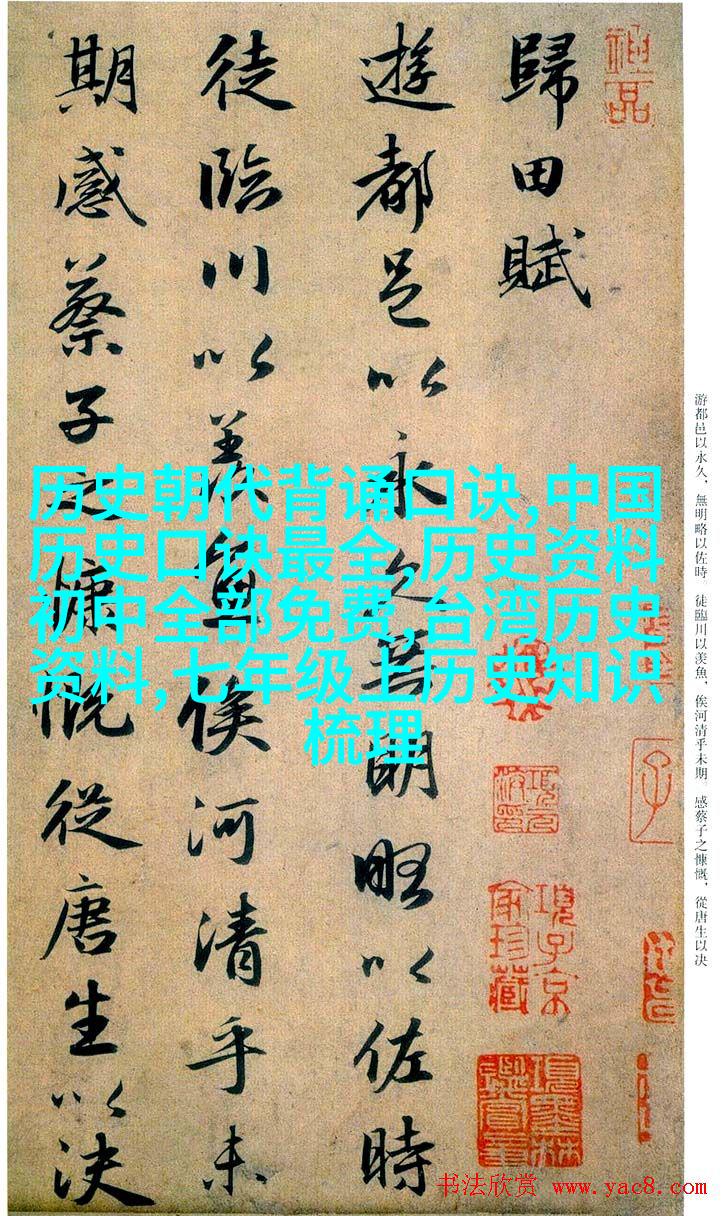 历史朝代背诵口诀,中国
历史口诀最全,历史资料
初中全部免费,台湾历史
资料,七年级上历史知识
梳理
神品
歸田賦
遊都邑以永久無明略以佐時
徒臨川以羨魚俟河清乎未
期感蔡子之慷慨從唐生以決
項子京
家珍藏
項墨林
鑑賞章
游都邑以永久，無明略以佐時。徒臨川以羨魚，俟河清乎未期。感蔡子之慷慨，從唐生以决
书法欣赏 www.yac8.com